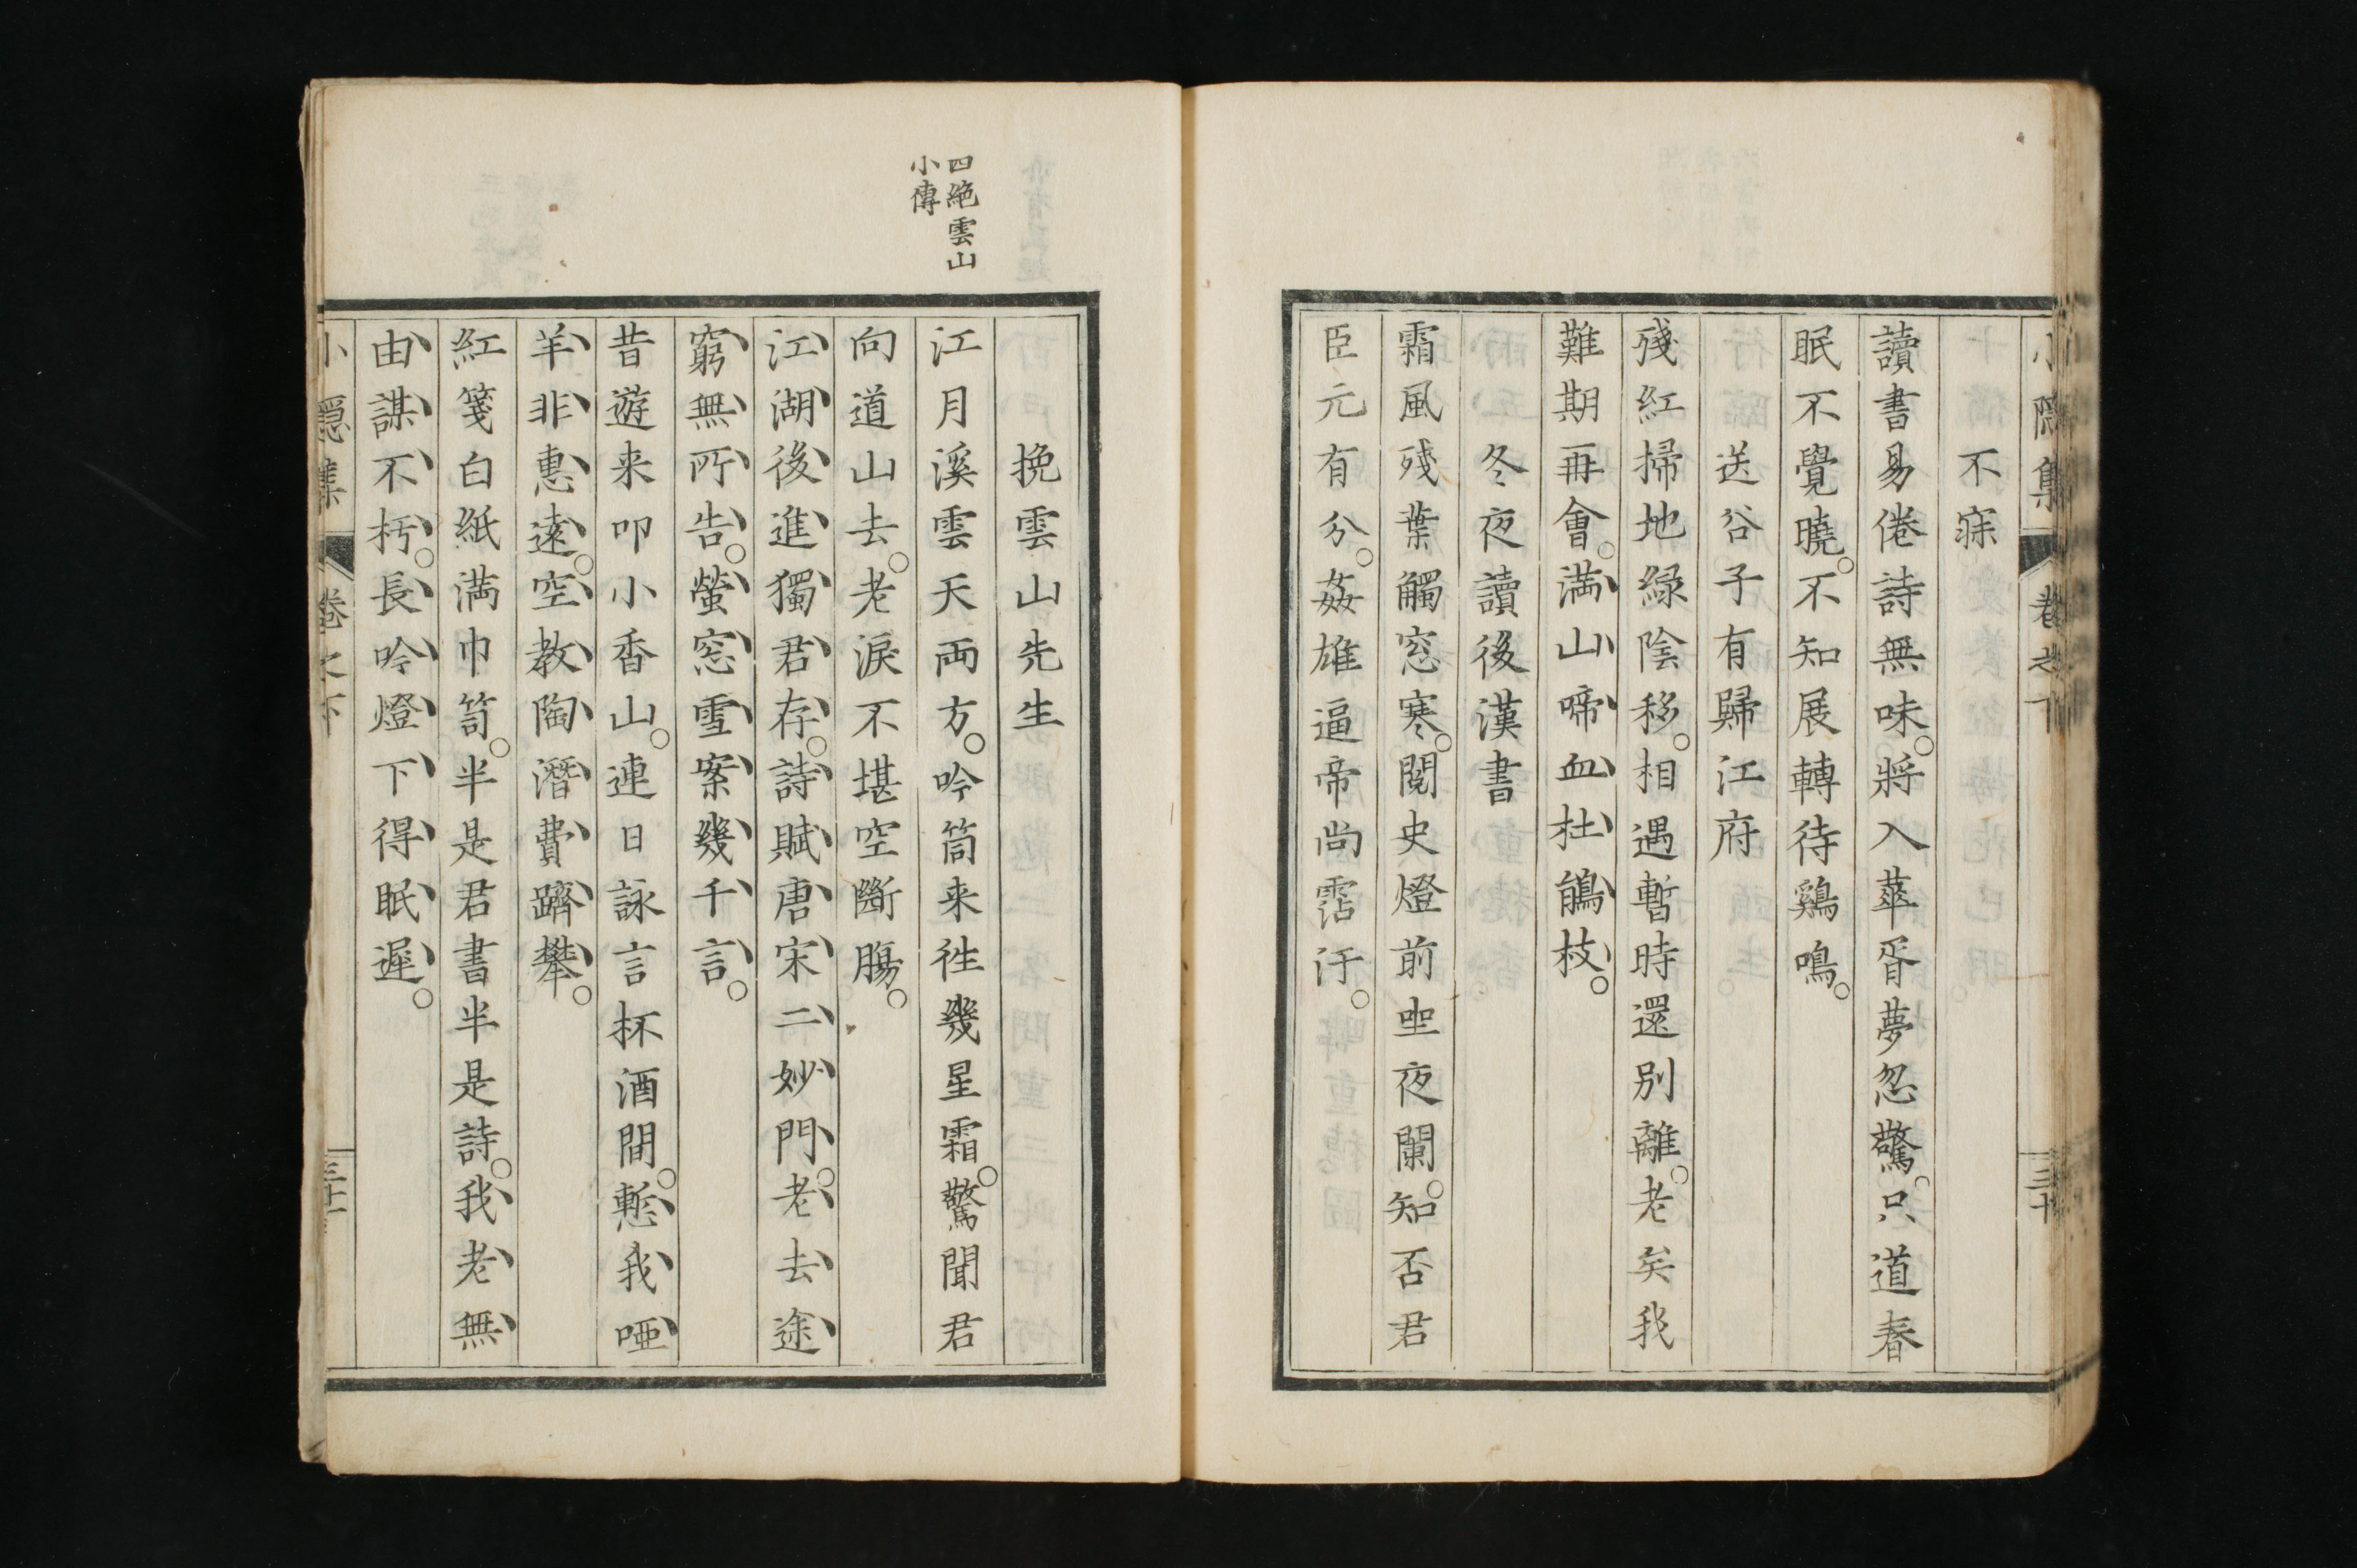 小隱集 卷之下 三十
不寐
讀書易倦詩無味○將入華胥夢忽驚○只道春
眠不覺曉○不知展轉待鷄鳴○
送谷子有歸江府
殘紅掃地緑陰移○相遇暫時還別離○老矣我
難期再會○満山啼血杜鵑枝○
冬夜讀後漢書
霜風殘葉觸窓寒○閲史燈前坐夜闌○知否君
臣元有分○姦雄逼帝尚霑汗○
四絶雲山
小傳
挽雲山先生
江月溪雲天両方○吟筒来往幾星霜○驚聞君
向道山去○老淚不堪空斷膓○
江湖後進獨君存○詩賦唐宋二妙門○老去途
窮無所告○螢窓雪案幾千言○
昔遊来叩小香山○連日詠言杯酒間○慙我啞
羊非惠遠○空教陶潛費躋攀○
紅箋白紙満巾笥○半是君書半是詩○我老無
由謀不朽○長吟燈下得眠遲○
小隱集 卷之下 三十一